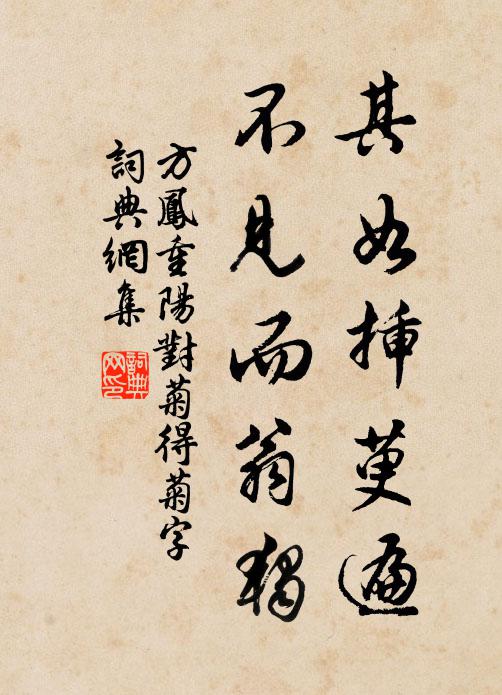 其如插萸遍
不見而翁獨
方鳳重陽對菊得菊字
詞典網集